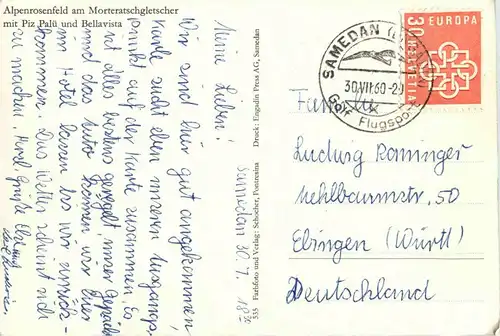 Alpenrosenfeld am Morteratschgletscher
mit Piz Palü und Bellavista
Meine Lieben!
Wir sind hier gut angekommen,
Karle sucht eben unseren Ausgangs-
punkt auf der Karte zusammen. Es
ist alles bestens geregelt, unser Gepäck
und das Auto können wir hier
im Hotel lassen bis wir zurück-
kommen. Das Wetter scheint sich
zu machen. Herzl. Grüße
Samedan 30.7. 18
555 Farbfoto und Verlag: Schocher, Pontresina
Druck: Engadin Press AG, Samedan
SAMEDAN
30.VII.60-20
Golf Flugsport
30 EUROPA
HELVETIA
Familie
Ludwig Romminger
Mehlbaumstr. 50
Ebingen (Württ)
Deutschland